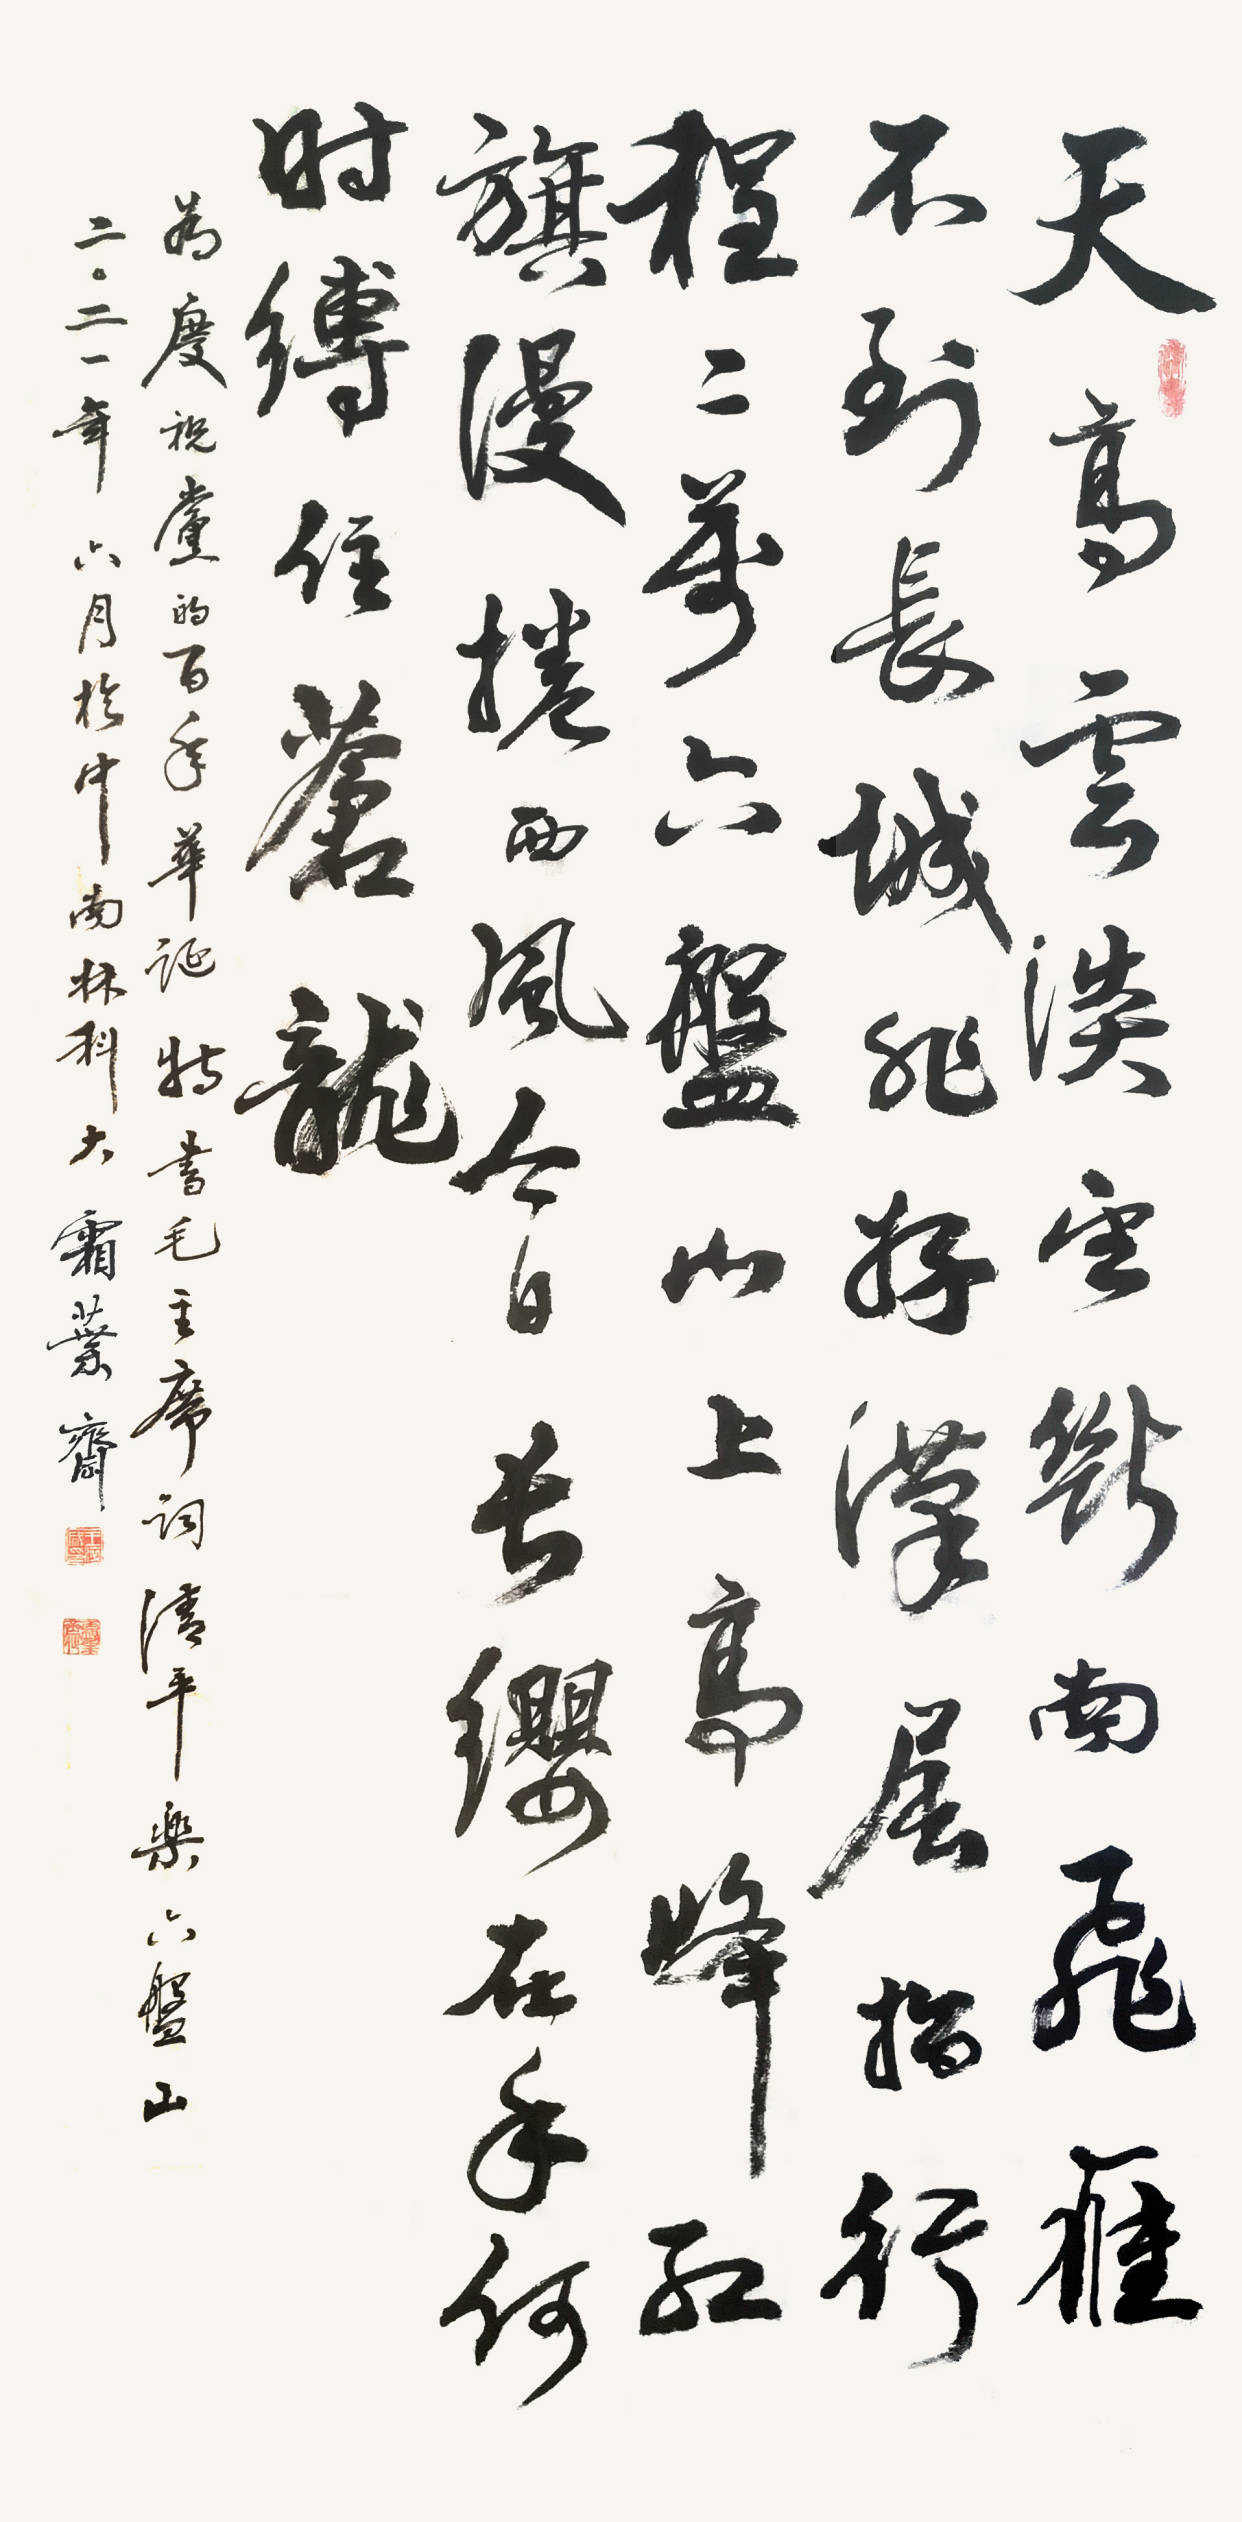 天高雲淡望斷南飛雁
不到長城非好漢屈指行
程二萬六盤山上高峰红
旗漫捲西風今日長纓在手何
时縛住蒼龍
為慶祝黨的百年華誕特書毛主席词清平樂六盤山
二〇二一年六月於中南林科大霜葉齋